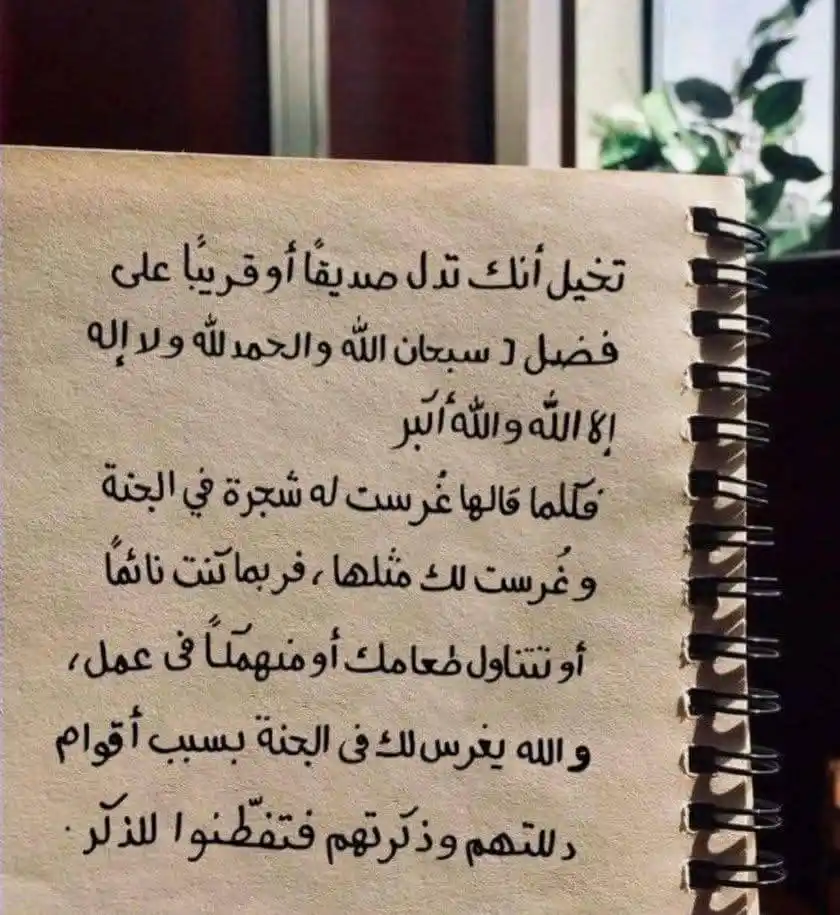 تخيل أنك تدل صديقًا أو قريبًا على
فضل [ سبحان الله والحمد لله ولا إله
إلا الله والله أكبر
فكلما قالها غُرست له شجرة في الجنة
وغُرست لك مثلها، فربما كنت نائمًا
أو تتناول طعامك أو منهمكاً فى عمل،
والله يغرس لك فى الجنة بسبب أقوام
دللتهم وذكرتهم فتفطّنوا للذكر.